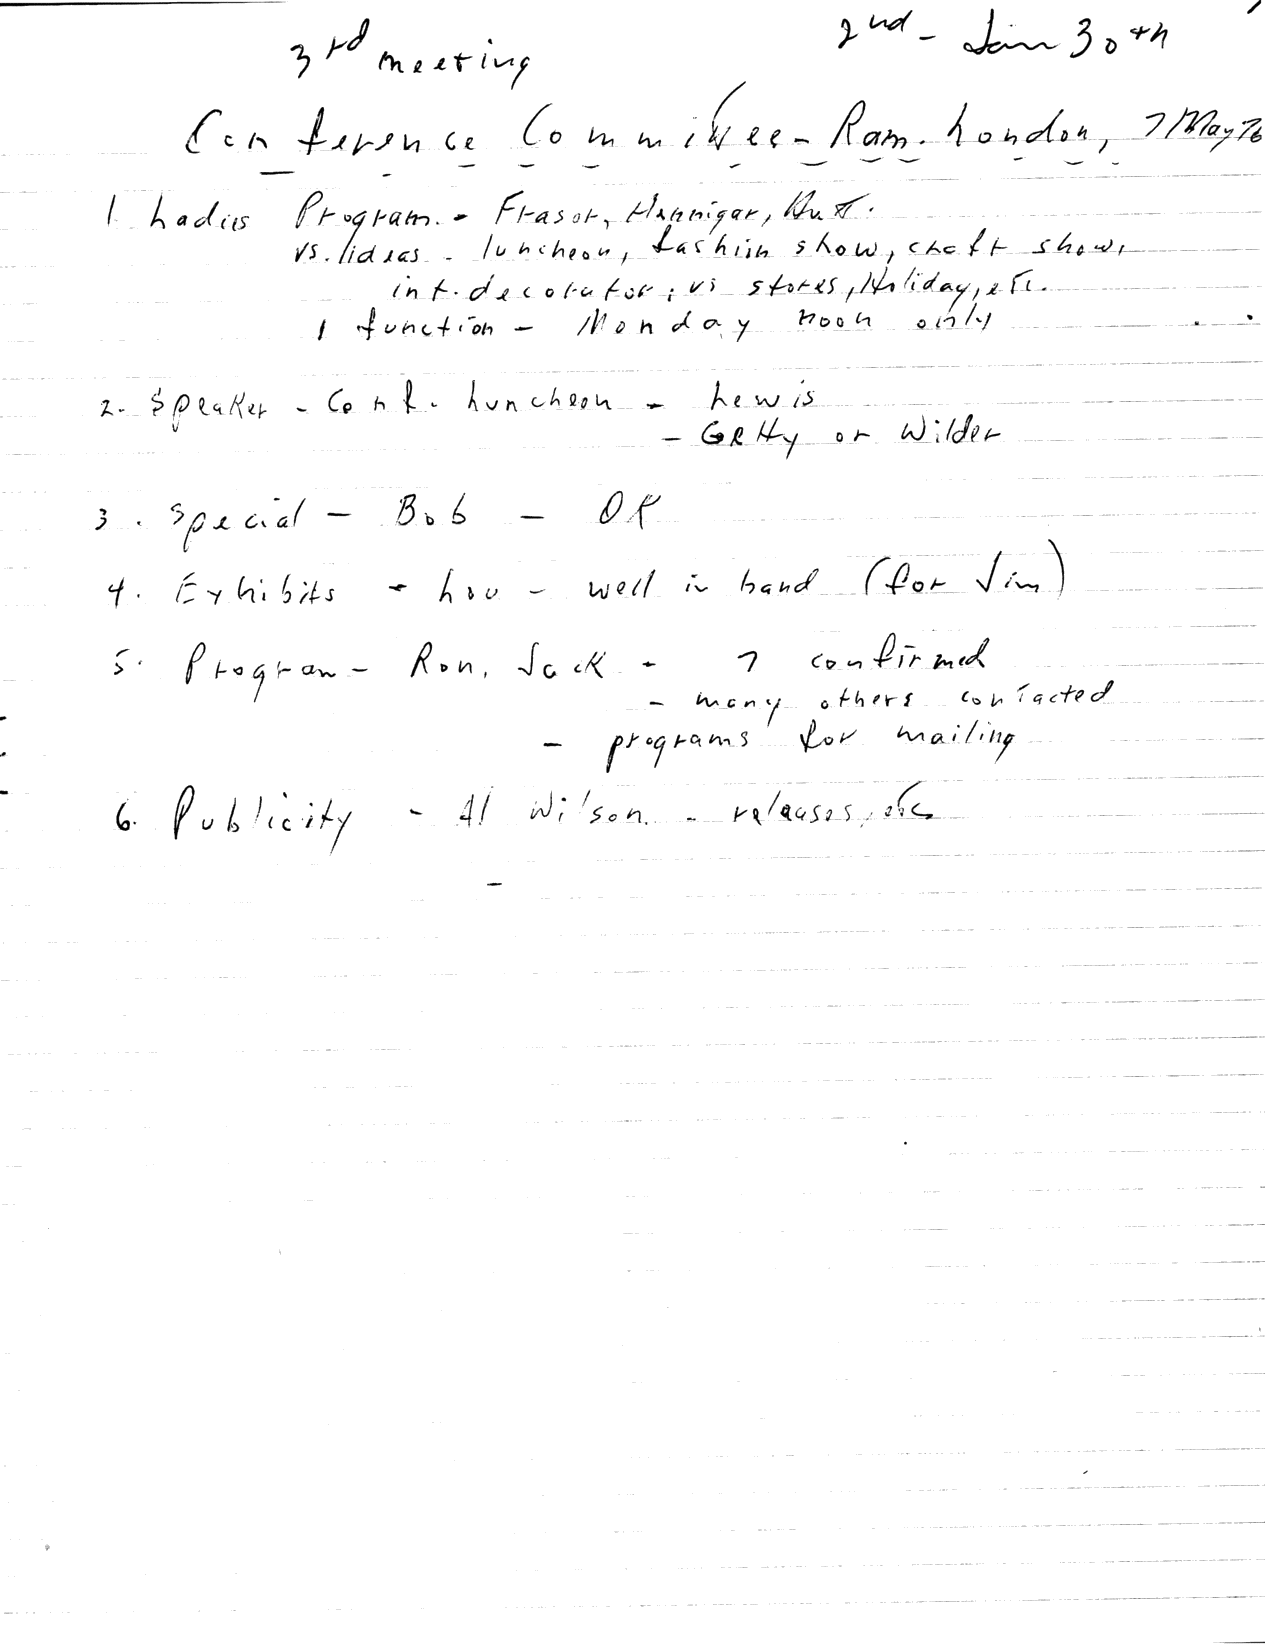 3rd meeting
2nd - Jan 30th
Conference Committee - Ram. London, 7 May 76
1. Ladies Program. - Frasor, Hannigar,
vs. ideas - luncheon, fashion show, craft show,
int. decorator, vs stores, Holiday, etc.
1 function - Monday noon only
2. Speaker - Conf. Luncheon - Lewis
- Getty or Wilder
3. Special - Bob - OK
4. Exhibits - Lou - well in hand (for Jim)
5. Program - Ron, Jack - 7 confirmed
- many others contacted
- programs for mailing
6. Publicity - Al Wilson - releases, etc
-